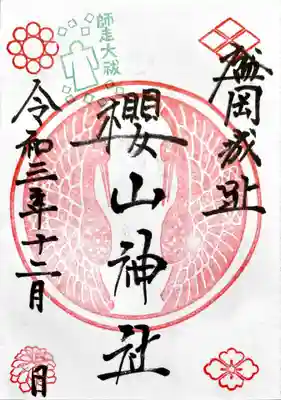 盛岡城趾
櫻山神社
師走大祓
令和三年十二月
月